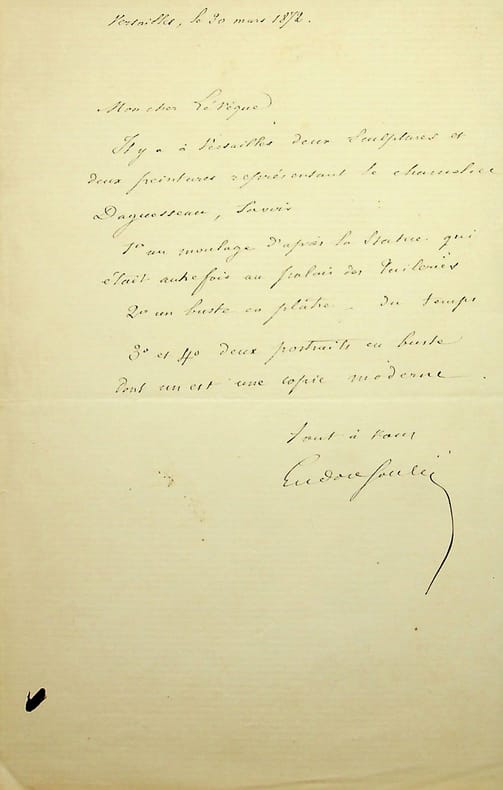 Versailles, le 30 mars 1872.
Mon cher Lévêque
Il y a à Versailles deux sculptures et
deux peintures représentant le chancelier
Daguesseau, savoir
1º un moulage d'après la statue qui
était autrefois au palais des Tuileries
2º un buste en plâtre du temps
3º et 4º deux portraits en buste
dont un est une copie moderne.
Tout à vous
Eudore Soulié